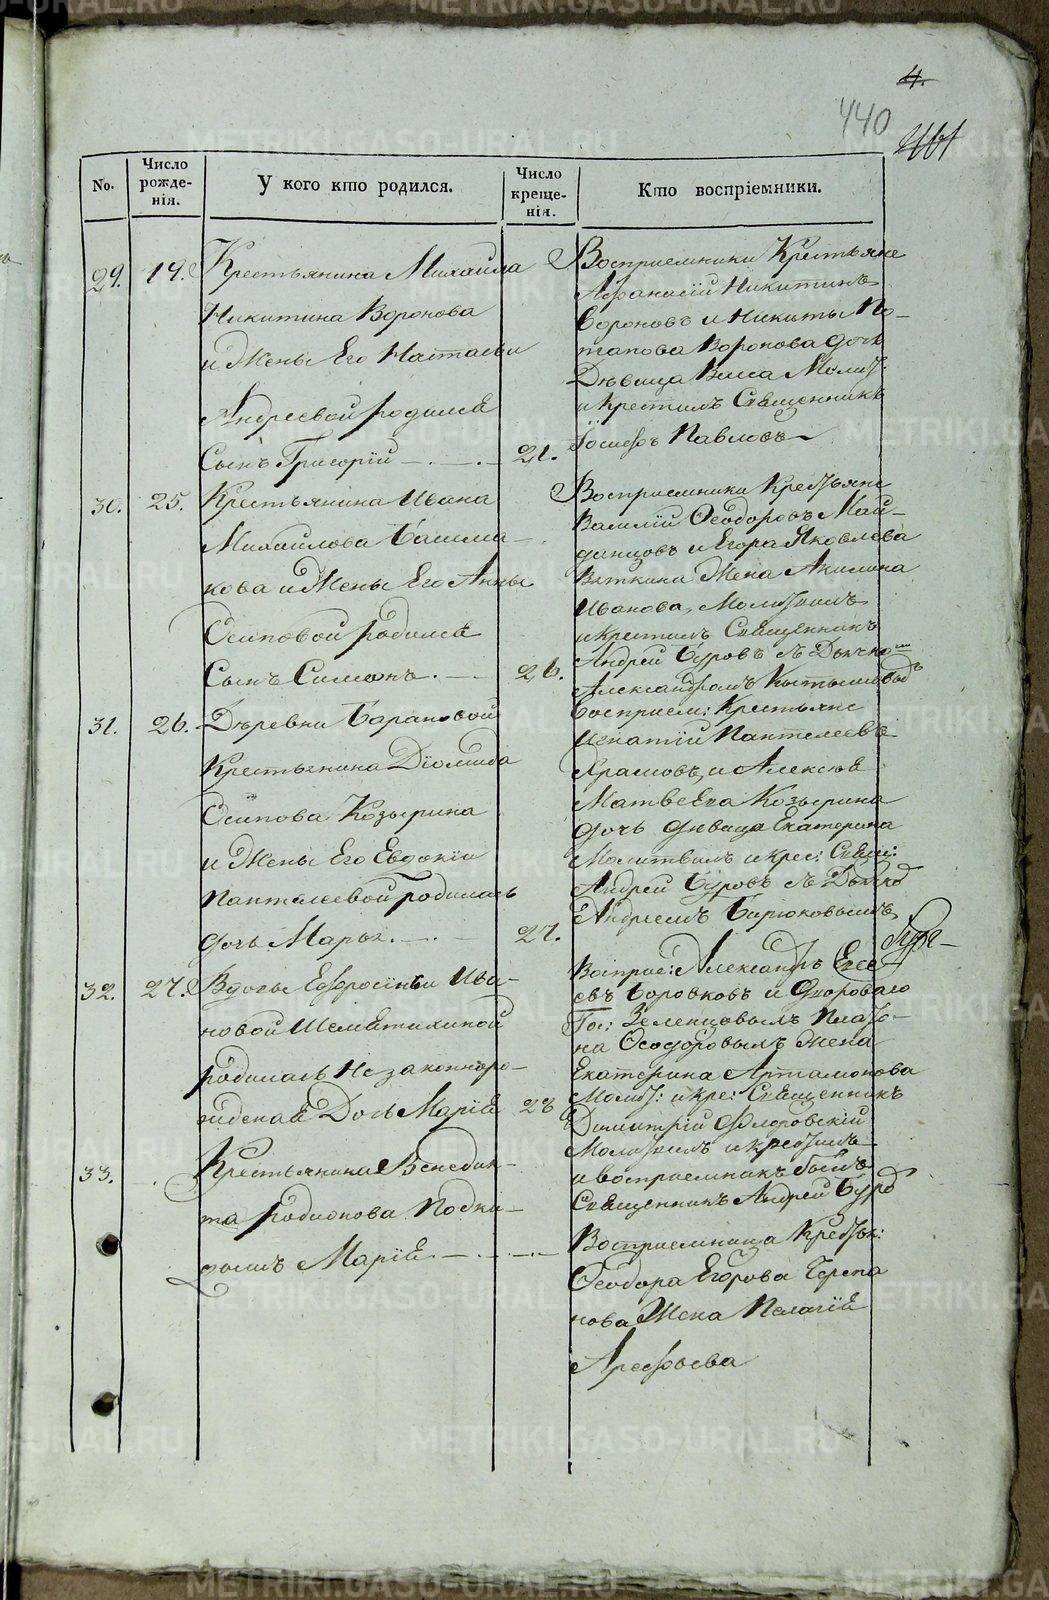 4.
440
No.
Число рожде-нія.
У кого кто родился.
Число креще-нія.
Кто воспріемники.
29.
19.
Крестьянина Михаила
Никитина Воронова
и Жены Его Натальи
Андреевой родился
Сынъ Григорій
21.
Восприемники Крестьяне
Афанасій Никитинъ
Вороновъ и Никиты По-
тапова Воронова дочь
Дѣвица Васса Молит.
и крестилъ Священникъ
Іосифъ Павловъ
30.
25.
Крестьянина Ивана
Михайлова Башма-
кова и Жены Его Анны
Осиповой родился
Сынъ Симеонъ.
26.
Восприемники Крестьяне
Василій Ѳеодоровъ Май-
данцовъ и Егора Яковлева
Вяткина Жена Акилина
Иванова, Молитвилъ
и крестилъ Священникъ
Андрей Буровъ съ Дьячко
Александромъ
31.
26.
Деревни Барановой
Крестьянина Діомида
Осипова Козырина
и Жены Его Евдокіи
Пантелеевой родилась
дочь Марья.
27.
Восприем: Крестьяне
Игнатій Пантелеевъ
Храмовъ, и Алексѣя
Матвеева Козырина
дочь дѣвица Екатерина
Молитвилъ и крес: Свящ:
Андрей Буровъ съ Дьячко
Андреемъ Бирюковымъ
32.
27.
Вдовы Ефросиньи Ива-
новой Шемятихиной
родилась Незаконноро-
жденая Дочь Марія
28
Воспріе: Александръ Елсе
евъ Боровковъ и дворового
Го: Зеленцовымъ Плато-
на Ѳеодоровымъ жена
Екатерина Артамонова
Молит: и кре: Священникъ
Димитрій Флоровскій
33.
Крестьянина Венедик-
та Родионова Подки-
дышъ Марія
Молитвилъ и крестилъ
и восприемникъ былъ
Священникъ Андрей Буров
Восприемница Крестьян:
Ѳеодора Егорова Черепа
нова Жена Пелагія
Арефьева
METRIKI.GASO-URAL.RU